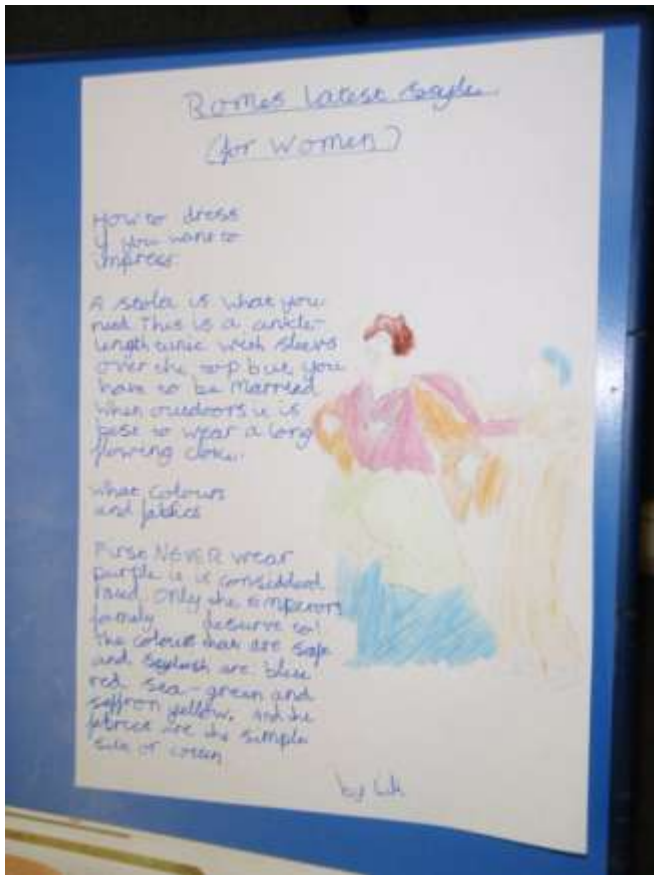 Romes latest style
(for women)
How to dress
if you want to
impress.
A stola is what you
need. This is a ankle-
length tunic with sleevs
over the top but you
have to be married.
When outdoors it is
best to wear a long
flowing cloke.
what colours
and fabrics
First NEVER wear
purple it is considderd
only the Emperors
family deserve to!
The colours that are safe
and stylish are blue
red, sea-green and
saffron yellow. and the
fabrics are the simple
silk or cotton
by